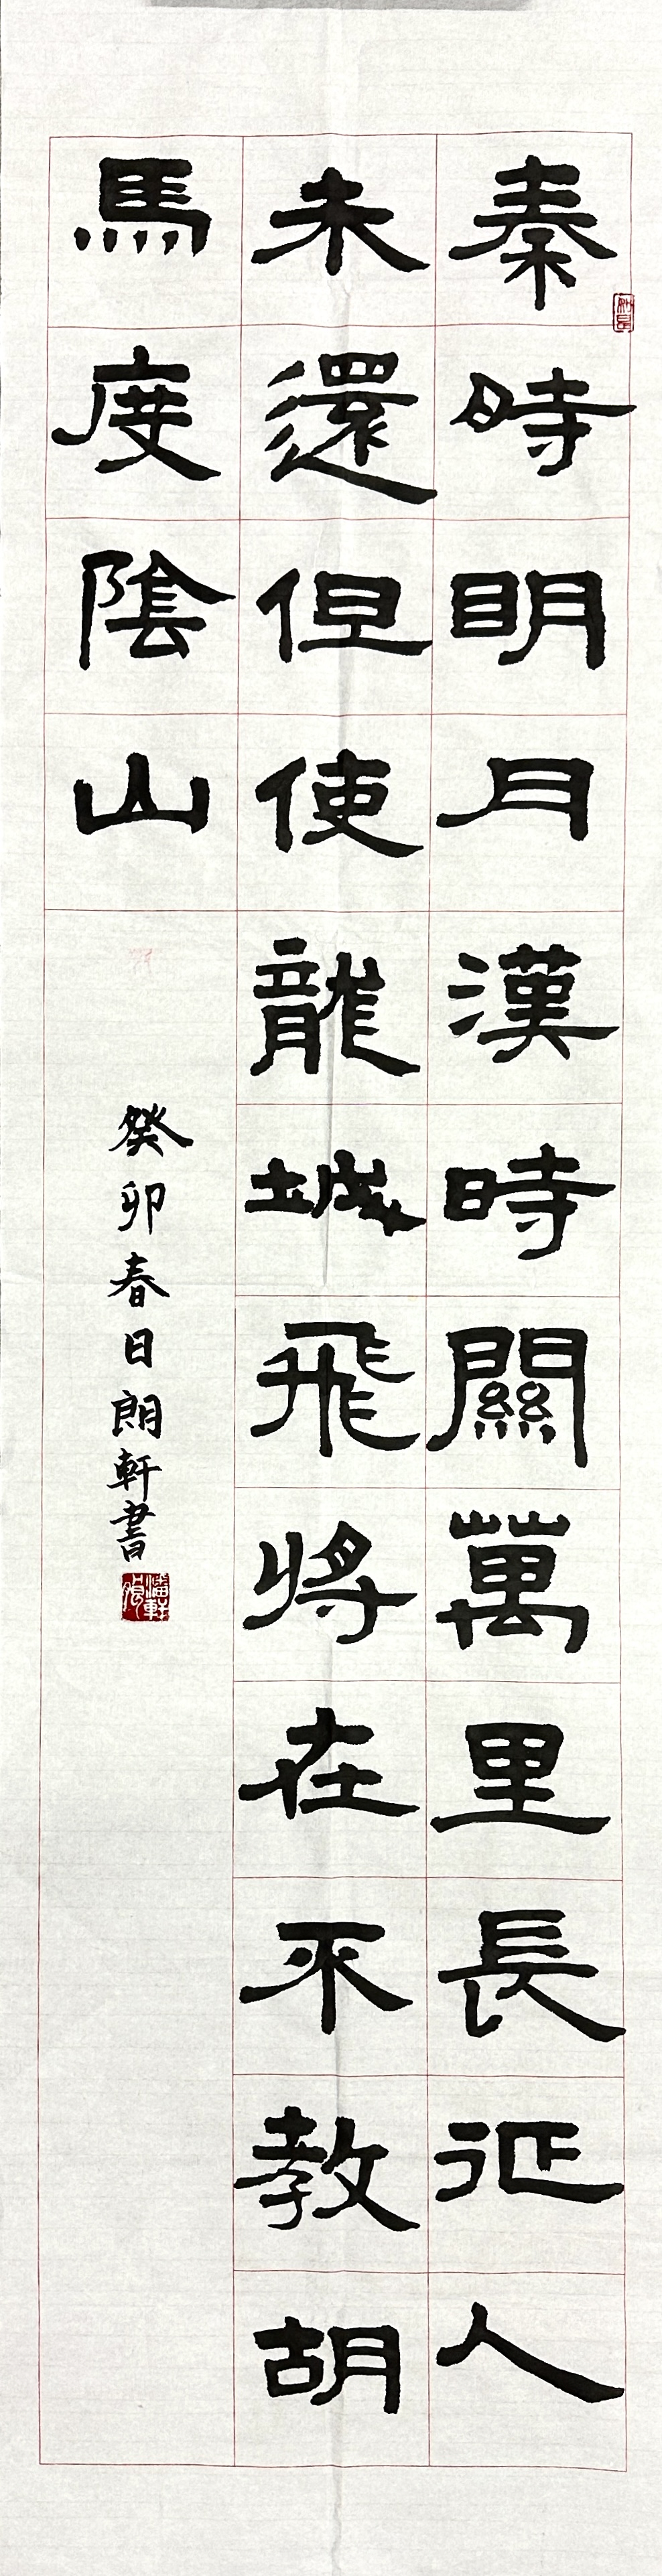 秦時明月漢時關萬里長征人
未還但使龍城飛將在不教胡
馬度陰山
癸卯春日朗軒書